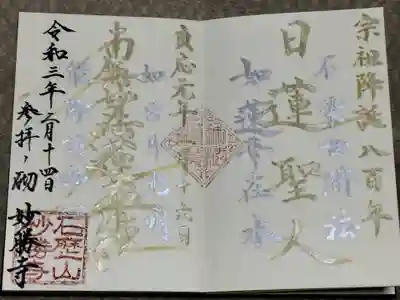 宗祖降誕八百年
不染世間法
日蓮聖人
如蓮華在水
貞応元年二月十六日
如日月光明
南無妙法蓮華経
令和三年二月十四日
参拝ノ砌 妙勝寺
石塔山
妙勝寺